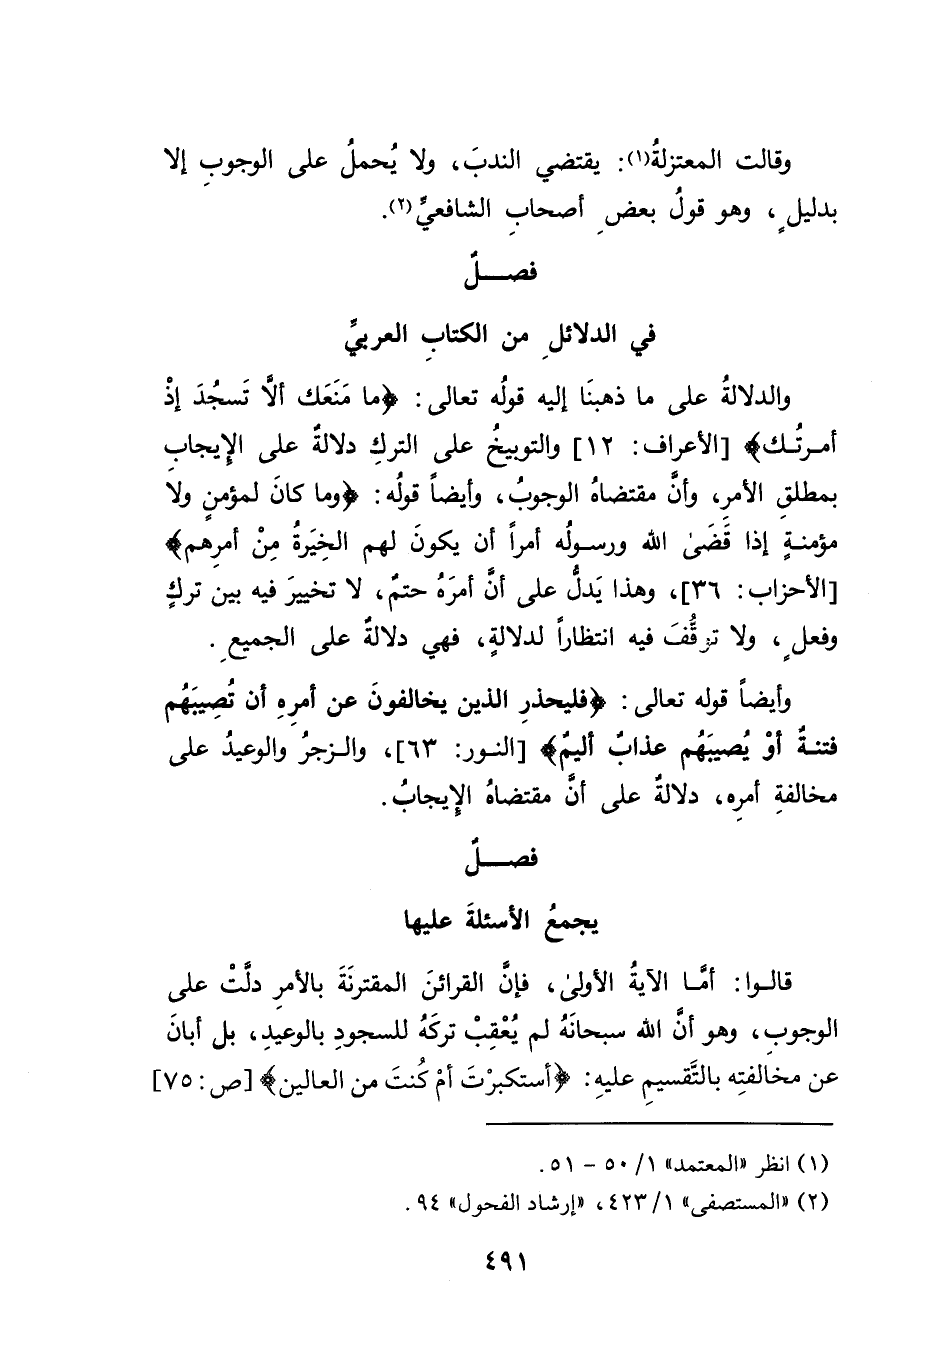 وقالت المعتزلةُ(١): يقتضي الندبَ، ولا يُحملُ على الوجوبِ إلا
بدليلٍ، وهو قولُ بعضِ أصحابِ الشافعيِّ(٢).
فصـــلٌ
في الدلائلِ من الكتابِ العربيِّ
والدلالةُ على ما ذهبنَا إليه قولُه تعالى: ﴿ما مَنَعَك ألَّا تَسجُدَ إذْ
أمـرتُـك﴾ [الأعراف: ١٢] والتوبيخُ على التركِ دلالةٌ على الإيجابِ
بمطلقِ الأمرِ، وأنَّ مقتضاهُ الوجوبُ، وأيضاً قولُه: ﴿وما كانَ لمؤمنٍ ولا
مؤمنـةٍ إذا قَضَىٰ الله ورسـولُه أمراً أن يكونَ لهم الخِيَرةُ مِنْ أمرِهم﴾
[الأحزاب: ٣٦]، وهذا يَدلُّ على أنَّ أمرَهُ حتمٌ، لا تخييرَ فيه بين تركٍ
وفعلٍ، ولا توقُّفَ فيه انتظاراً لدلالةٍ، فهي دلالةٌ على الجميعِ.
وأيضاً قوله تعالى: ﴿فليحذرِ الذين يخالفونَ عن أمرِه أن تُصِيبَهُم
فتنـةٌ أوْ يُصيبَهُم عذابٌ أليمٌ﴾ [النـور: ٦٣]، والـزجرُ والوعيدُ على
مخالفةِ أمرِه، دلالةٌ على أنَّ مقتضاهُ الإيجابُ.
فصـــلٌ
يجمعُ الأسئلةَ عليها
قالـوا: أمَّـا الآيةُ الأولىٰ، فإنَّ القرائنَ المقترنَةَ بالأمرِ دلَّتْ على
الوجوبِ، وهو أنَّ الله سبحانَهُ لم يُعْقِبْ تركَهُ للسجودِ بالوعيدِ، بل أبانَ
عن مخالفتِه بالتَّقسيمِ عليهِ: ﴿أستكبرْتَ أمْ كُنتَ من العالين﴾ [ص: ٧٥]
(١) انظر «المعتمد» ١/ ٥٠ - ٥١.
(٢) «المستصفى» ١/ ٤٢٣، «إرشاد الفحول» ٩٤.
٤٩١